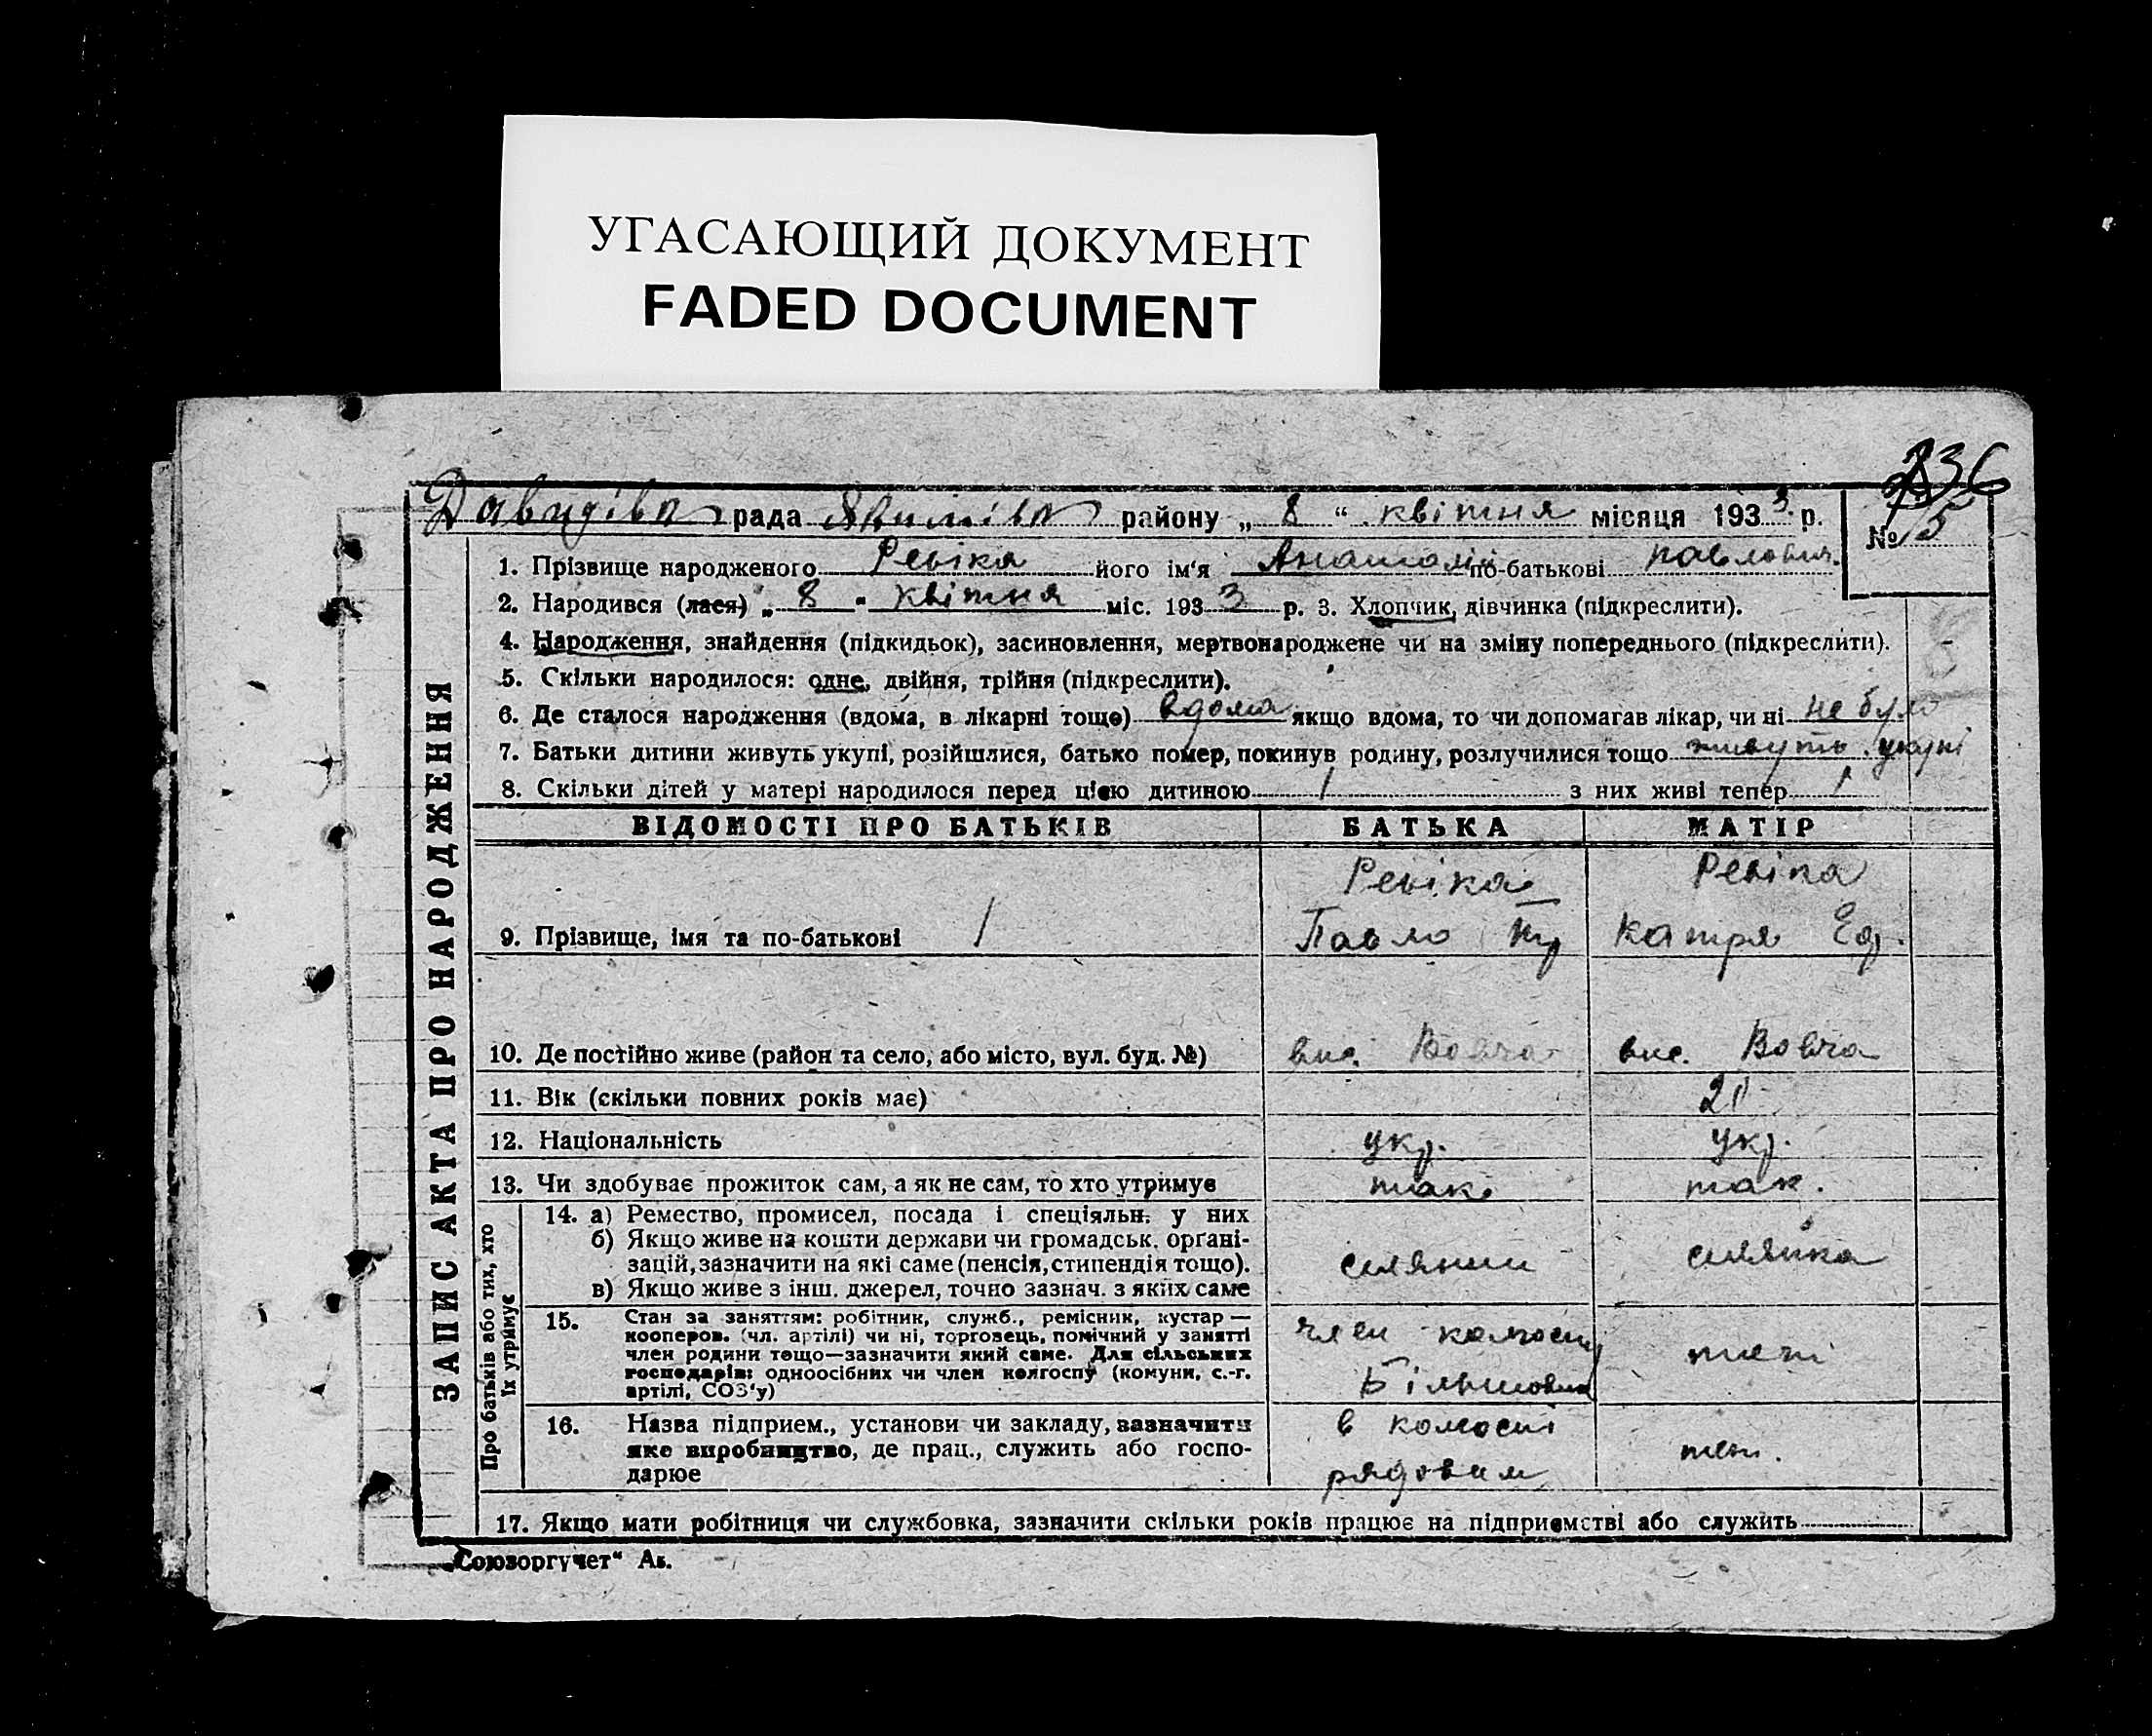 УГАСАЮЩИЙ ДОКУМЕНТ
FADED DOCUMENT
236
Давидівка рада Якимівка району „ 8 “ квітня місяця 1933 р.
№ 15
1. Прізвище народженого Ревіка його ім'я Анатолій по-батькові Павлович
2. Народився (лася) „ 8 “ квітня міс. 193 3 р. 3. Хлопчик, дівчинка (підкреслити).
4. Народження, знайдення (підкидьок), засиновлення, мертвонароджене чи на зміну попереднього (підкреслити).
5. Скільки народилося: одне, двійня, трійня (підкреслити).
6. Де сталося народження (вдома, в лікарні тощо) вдома якщо вдома, то чи допомагав лікар, чи ні не було
7. Батьки дитини живуть укупі, розійшлися, батько помер, покинув родину, розлучилися тощо живуть укупі
8. Скільки дітей у матері народилося перед цією дитиною 1 з них живі тепер 1
ЗАПИС АКТА ПРО НАРОДЖЕННЯ
ВІДОМОСТІ ПРО БАТЬКІВ БАТЬКА МАТІР
Ревіка Ревіка
9. Прізвище, імя та по-батькові Павло Катря
10. Де постійно живе (район та село, або місто, вул. буд. №) вис. Вовча вис. Вовча
11. Вік (скільки повних років має) 21
12. Національність укр. укр.
13. Чи здобуває прожиток сам, а як не сам, то хто утримує так. так.
Про батьків або тих, хто
їх утримує
14. а) Ремество, промисел, посада і спеціяльн. у них
б) Якщо живе на кошти держави чи громадськ. органі-
зацій, зазначити на які саме (пенсія, стипендія тощо).
в) Якщо живе з інш. джерел, точно зазнач. з яких саме
селянин селянка
15. Стан за заняттям: робітник, служб., ремісник, кустар —
кооперов. (чл. артілі) чи ні, торговець, помічний у занятті
член родини тощо—зазначити який саме. Для сільських
господарів: одноосібних чи член колгоспу (комуни, с.-г.
артілі, СОЗ'у)
член колгоспу
Більшовик
16. Назва підприєм., установи чи закладу, зазначити
яке виробництво, де прац., служить або госпо-
дарює
в колгоспі
рядовим
17. Якщо мати робітниця чи службовка, зазначити скільки років працює на підприємстві або служить
„Союзоргучет“